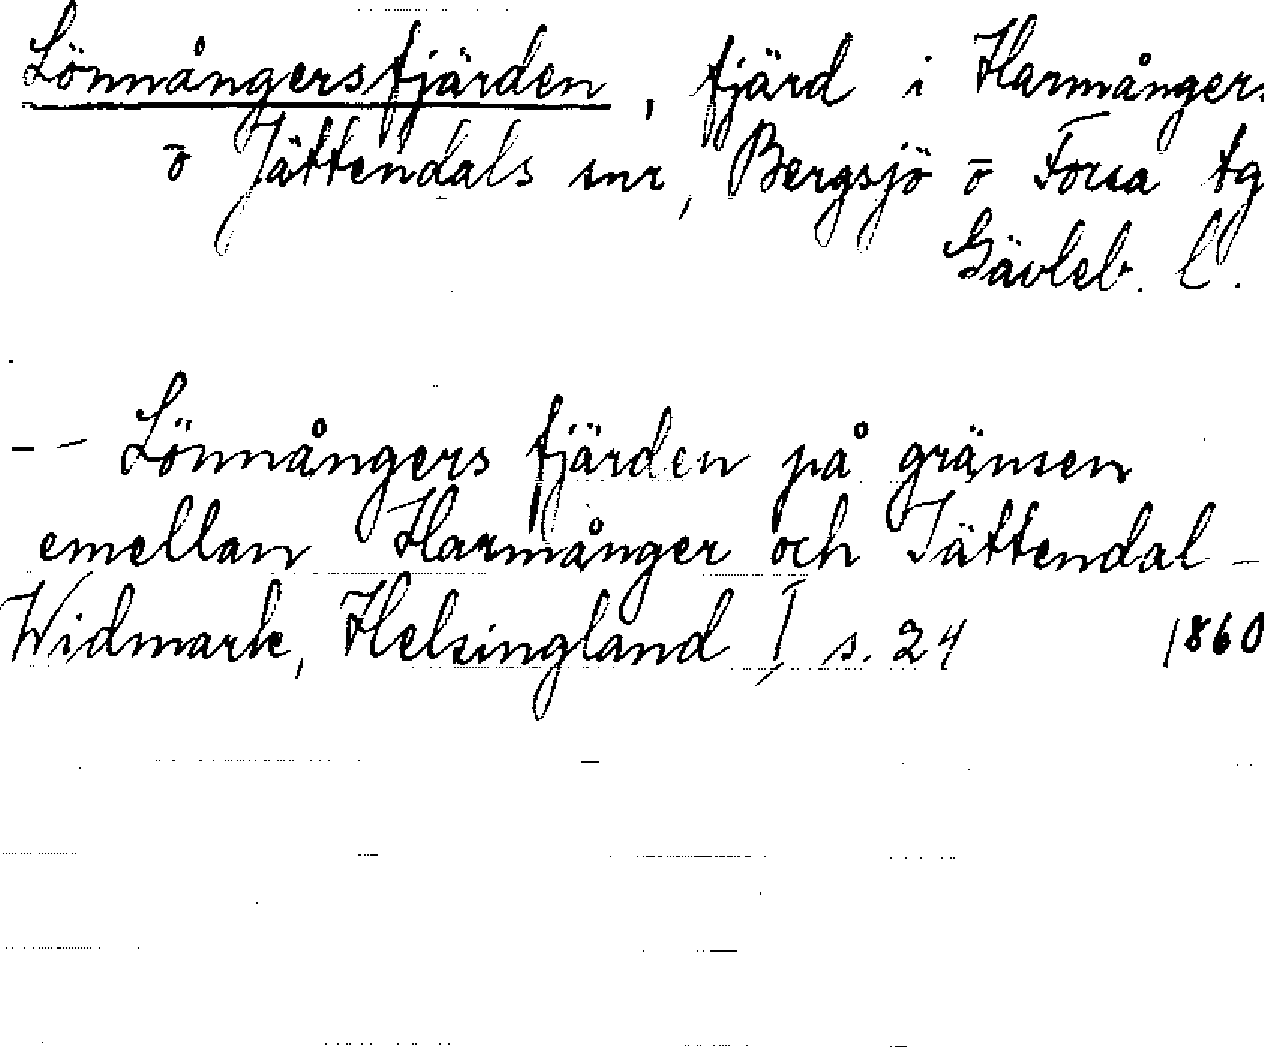 Lönnångersfjärden, fjärd i Harmångers
o Jättendals snr, Bergsjö o Forsa tg
Gävleb. l.
- - Lönnångers fjärden på gränsen
emellan Harmånger och Jättendal -
Widmark, Helsingland I s. 24 1860